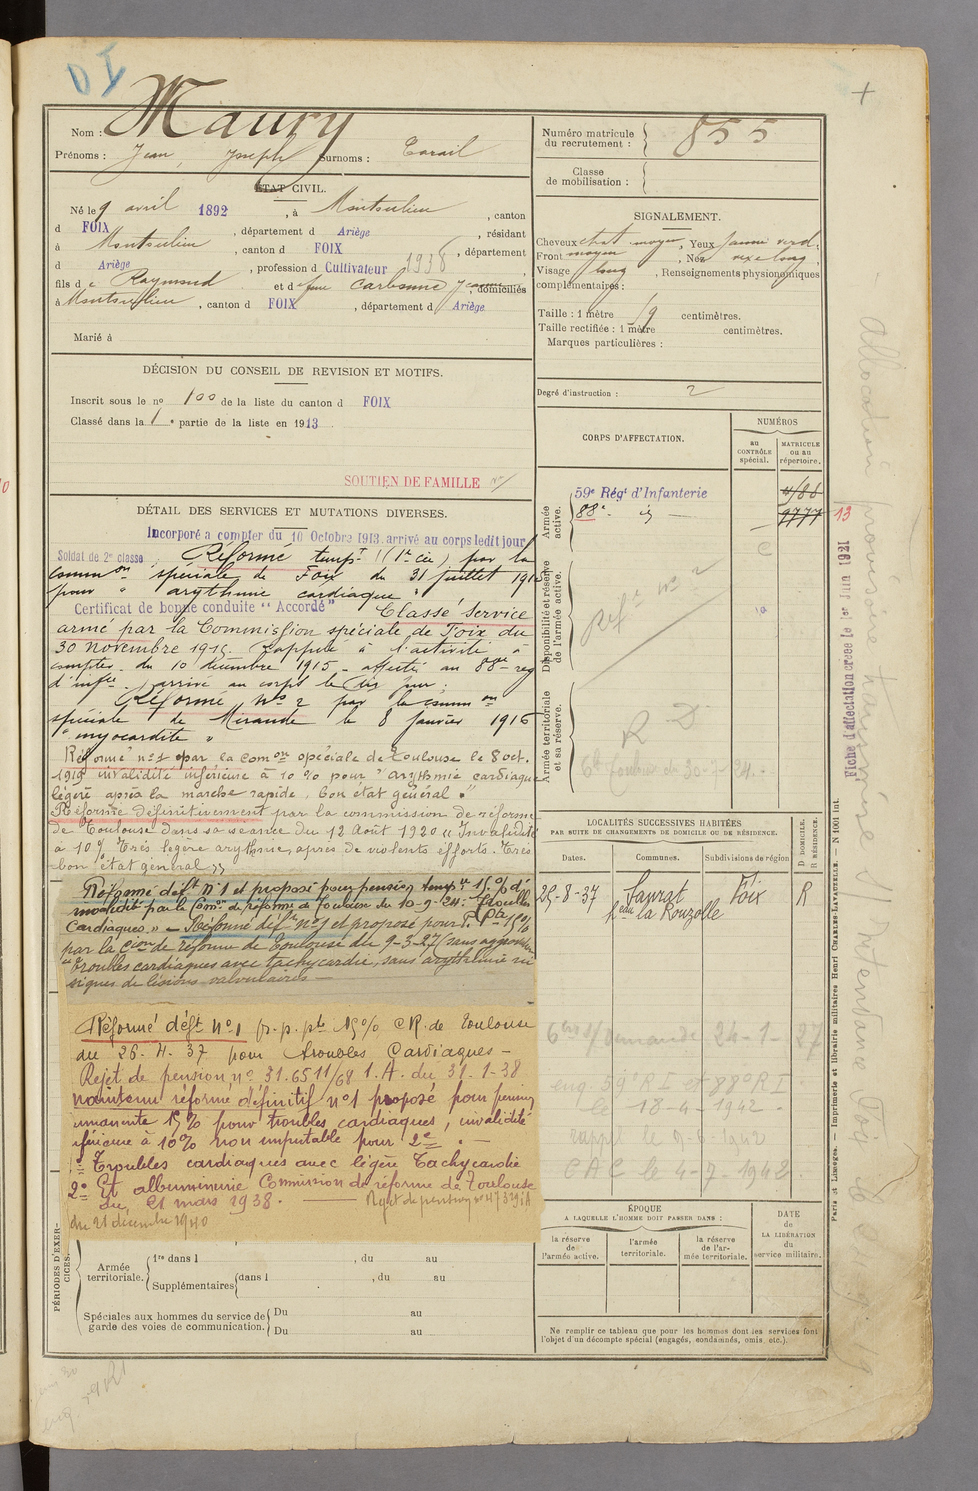 D I
+
Nom : Maury
Prénoms : Jean, Joseph Surnoms :
ÉTAT CIVIL.
Né le 9 avril 1892, à Montoulieu, canton
d FOIX, département d Ariège, résidant
à Montoulieu, canton d FOIX, département
d Ariège, profession d Cultivateur 1938
fils de Raymond et de feue Carbonne Jeanne, domiciliés
à Montoulieu, canton d FOIX, département d Ariège
Marié à
DÉCISION DU CONSEIL DE REVISION ET MOTIFS.
Inscrit sous le no 100 de la liste du canton d FOIX
Classé dans la 1e partie de la liste en 1913
SOUTIEN DE FAMILLE
DÉTAIL DES SERVICES ET MUTATIONS DIVERSES.
Incorporé a compter du 10 Octobre 1913. arrivé au corps ledit jour
Soldat de 2e classe, Réformé tempt 1 (1e cie) par la
common spéciale de Foix du 31 juillet 191
pour " arythmie cardiaque "
Certificat de bonne conduite "Accordé" Classé Service
armé par la Commission spéciale de Foix du
30 novembre 1915. Rappelé à l'activité à
compter du 10 décembre 1915 - affecté au 88me rég
d'infie. arrivé au corps le dix sur.
Réformé No 2 par la common
spéciale de Mirande le 8 janvier 1916
" myocardite "
Réformé no 1 par la comon spéciale de Toulouse le 8 oct.
1919 invalidité inférieure à 10 % pour " arythmie cardiaque
légère après la marche rapide, bon état général "
Réformé définitivement par la commission de réforme
de Toulouse dans sa séance du 12 Août 1920 " Invalidité
à 10% Très légère arythmie, après de violents efforts. Très
bon état général "
Réformé déft No 1 et proposé pour pension tempre 15 % d'
invalidité par la Comon de réforme de Toulouse du 10-9-24: "Troubles
Cardiaques." - Réformé déft no 1 et proposé pour P. Pte 15 %
par la Cion de réforme de Toulouse du 9-3-27 (sans aggravation
"troubles cardiaques avec tachycardie, sans arythmie ni
signes de lésions valvulaires -
Réformé déft No 1 p. p. pte 15 % C.R. de Toulouse
du 26. 4. 37 pour troubles Cardiaques -
Rejet de pension no 31.6511/69 1. A. du 31. 1-38
maintenu réformé définitif no 1 proposé pour pension
rmanente 15 % pour troubles cardiaques, invalidité
férieure à 10 % non imputable pour 2e . -
1o Troubles cardiaques avec légère tachycardie
2o Et albuminerie Commission de réforme de Toulouse
du 21 mars 1938. Rejet de pension no
du 21 décembre 1940
PÉRIODES D'EXERCICES.
Armée territoriale.
1re dans l , du au
Supplémentaires dans l , du au
Spéciales aux hommes du service de garde des voies de communication.
Du au
Du au
Numéro matricule du recrutement : 855
Classe de mobilisation :
SIGNALEMENT.
Cheveux chat moyen, Yeux jaune verd.
Front moyen, Nez long
Visage long, Renseignements physionomiques
complémentaires :
Taille : 1 mètre 59 centimètres.
Taille rectifiée : 1 mètre centimètres.
Marques particulières :
Degré d'instruction : 2
CORPS D'AFFECTATION.
NUMÉROS
au CONTRÔLE spécial.
MATRICULE ou au répertoire.
Armée active.
59e Régt d'Infanterie
88e id
9777
13
Disponibilité et réserve de l'armée active.
Réf é No 2
Armée territoriale et sa réserve.
R. D.
Toulouse du 30-7-24.
LOCALITÉS SUCCESSIVES HABITÉES
PAR SUITE DE CHANGEMENTS DE DOMICILE OU DE RÉSIDENCE.
Dates. Communes. Subdivisions de région D. DOMICILE. R. RÉSIDENCE.
25-8-37 Saurat Foix R
heau la Rouzolle
demande 24-1-27
eng. 59e R I et 88e R I
le 18-4-1942
rappel le 1942
C A C le 4-7-1942
ÉPOQUE
A LAQUELLE L'HOMME DOIT PASSER DANS :
la réserve de l'armée active.
l'armée territoriale.
la réserve de l'armée territoriale.
DATE de LA LIBÉRATION du service militaire.
Ne remplir ce tableau que pour les hommes dont les services font
l'objet d'un décompte spécial (engagés, condamnés, omis, etc.).
Fiche d'affectation créée le 1er Juin 1921
Allocation provisoire transmise à l'Intendance Foix le
Paris et Limoges. — Imprimerie et librairie militaires Henri CHARLES-LAVAUZELLE. — N 1001 int.